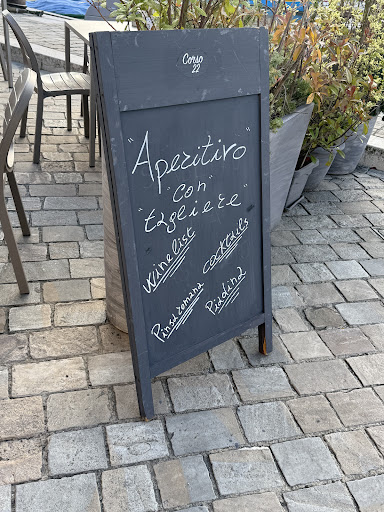 Corso
22
"Aperitivo"
"con"
"tagliere"
Winelist cocktails
Pinsa romana Piadina